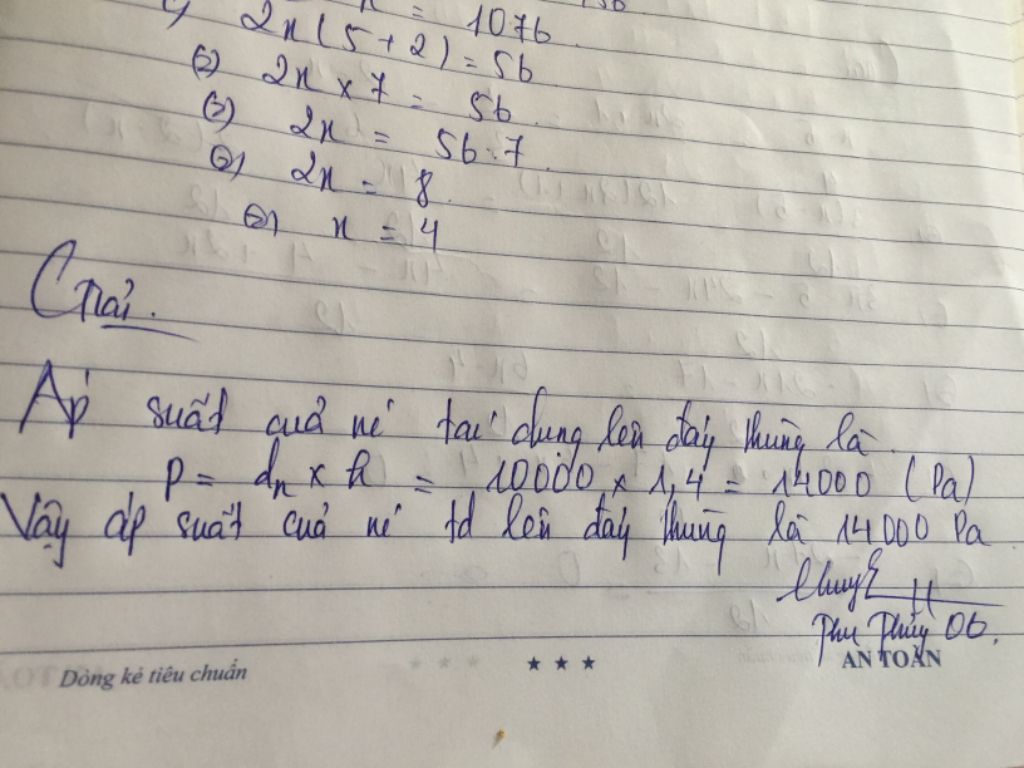 = 1076
2x(5+2)=56
(=) 2x × 7 = 56
(=) 2x = 56:7
(=) 2x = 8
(=) x = 4
Giải.
Áp suất của nc tác dụng lên đáy thùng là
P = dn × h = 10000 × 1,4 = 14000 (Pa)
Vậy áp suất của nc td lên đáy thùng là 14000 Pa
Thu Thủy 06.
Dòng kẻ tiêu chuẩn ★ ★ ★ AN TOÀN